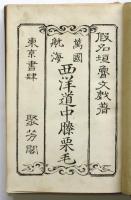 假名垣魯文戯著
萬國
航海
西洋道中膝栗毛
東京書肆
聚芳閣